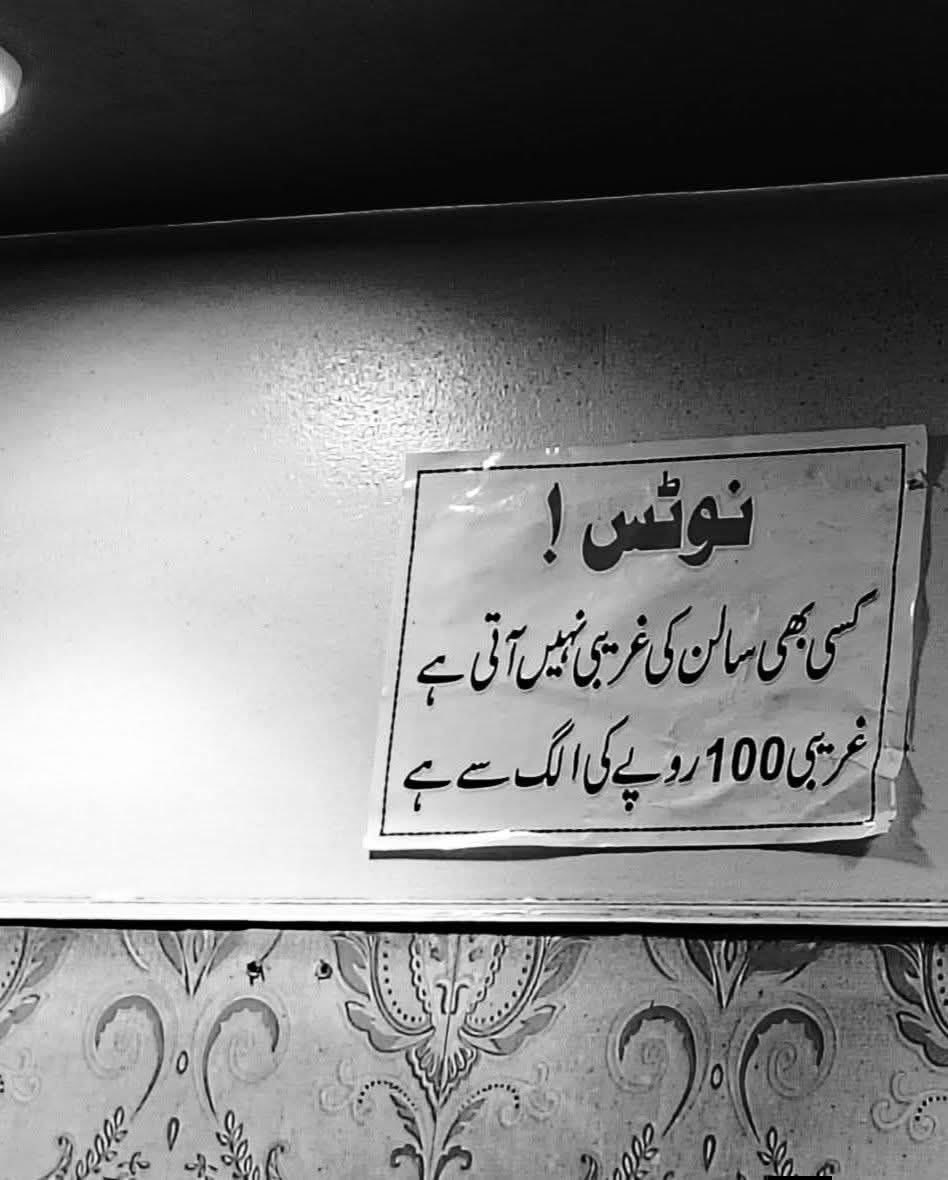 نوٹس !
کسی بھی سالن کی غریبی نہیں آتی ہے
غریبی 100 روپے کی الگ سے ہے